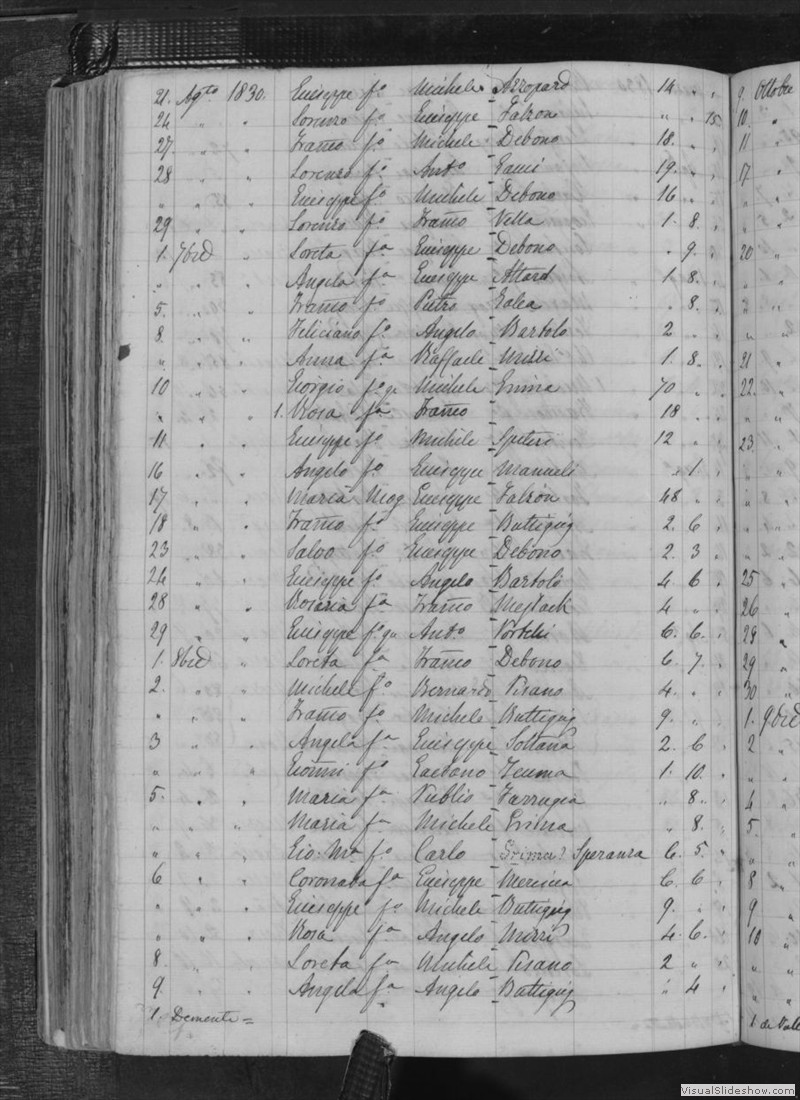 21. Agto 1830. Giuseppe fo Michele Azzopard 14 " "
24 " " Lorenzo fo Giuseppe Falzon " " 15
27 " " Franco fo Michele Debono 18 " "
28 " " Lorenzo fo Anto Gauci 19 " "
" " " Giuseppe fo Michele Debono 16 " "
29 " " Lorenzo fo Franco Vella 1. 8. "
1. 7bre " Loreta fa Giuseppe Debono " 9. "
" " " Angela fa Giuseppe Attard 1. 8. "
5. " " Franco fo Pietro Galea " 8. "
8. " " Feliciano fo Angelo Bartolo 2 " "
" " " Anna fa Raffaele Mizzi 1. 8. "
10 " " Giorgio fo qm Michele Grima 70 " "
" " " 1. Rosa fa Franco 18 " "
11 " " Giuseppe fo Michele Spiteri 12 " "
16 " " Angelo fo Giuseppe " 1. "
17 " " Maria Mog Giuseppe Falzon 48 " "
18 " " Franco fo Giuseppe Buttigieg 2. 6 "
23 " " Salvo fo Giuseppe Debono 2. 3 "
24 " " Giuseppe fo Angelo Bartolo 4. 6 "
28 " " Rosaria fa Franco Mejlach 4 " "
29 " " Giuseppe fo qm Anto Portelli 6. 6. "
1. 8bre " Loreta fa Franco Debono 6. 7. "
2. " " Michele fo Bernardo Pisano 4. " "
" " " Franco fo Michele Buttigieg 9. " "
3 " " Angela fa Giuseppe Soltana 2. 6 "
" " " Gionni fo Gaetano Zeuma 1. 10. "
5. " " Maria fa Publio Farrugia " 8. "
" " " Maria fa Michele Grima " 8. "
" " " Gio: Ma fo Carlo Grima? Speranza 6. 5. "
6 " " Coronata fa Giuseppe Mercieca 6. 6 "
" " " Giuseppe fo Michele Buttigieg 9. " "
" " " Rosa fa Angelo Mizzi 4. 6. "
8. " " Loreta fa Michele Pisano 2 " "
9. " " Angela fa Angelo Buttigieg " 4 "
1. Demente =
9. Ottobre
10 "
11 "
17 "
20 "
21 "
22. "
23 "
25 "
26 "
28 "
29 "
30 "
1. 9bre
2 "
4 "
5. "
8 "
9 "
10 "
1 de
VisualSlideshow.com